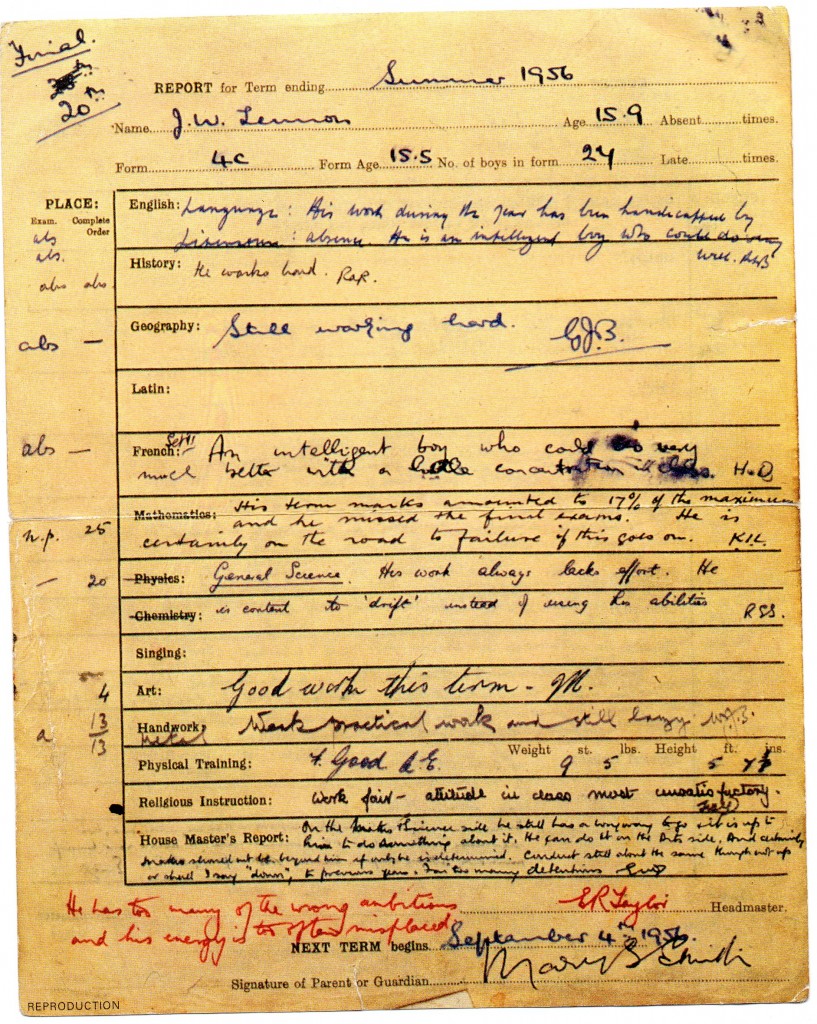 Final.
20th
REPORT for Term ending Summer 1956
Name J. W. Lennon Age 15.9 Absent times.
Form 4C Form Age 15.5 No. of boys in form 24 Late times.
PLACE:
Exam. Complete Order
abs
abs.
English: Language: His work during the year has been handicapped by
Literature: absence. He is an intelligent boy who could do very
well.
abs abs.
History: He works hard.
abs —
Geography: Still working hard. EJB.
Latin:
abs —
French: An intelligent boy who could do very
much better with a little concentration in class.
n.p. 25
Mathematics: His term marks amounted to 17% of the maximum
and he missed the final exams. He is
certainly on the road to failure if this goes on.
— 20
Physics: General Science. His work always lacks effort. He
Chemistry: is content to 'drift' instead of using his abilities RSS.
Singing:
4
Art: Good work this term -
a 13/13
Handwork: Metal Weak practical work and still lazy
Physical Training: F. Good Weight 9 st. 5 lbs. Height 5 ft. 7 ins.
Religious Instruction: Work fair — attitude in class most unsatisfactory.
House Master's Report: On the Maths & Science side he still has a long way to go & it is up to
him to do something about it. He can do it on the Arts side. And certainly
beyond him if only he is determined. Conduct still about the same though not up
or shall I say "down", to previous years. Far too many detentions
He has too many of the wrong ambitions
and his energy is too often misplaced
E R Taylor Headmaster.
NEXT TERM begins September 4th 1956.
Signature of Parent or Guardian Mary E Smith
REPRODUCTION